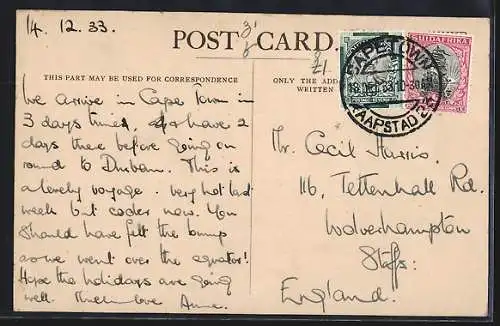 14. 12. 33.
POST CARD.
THIS PART MAY BE USED FOR CORRESPONDENCE
ONLY THE ADD
WRITTEN
We arrive in Cape Town in
3 days time, & have 2
days there before going on
round to Durban. This is
a lovely voyage. very hot last
week but cooler now. You
should have felt the bump
as we went over the equator!
Hope the holidays are going
well. Much love Anne.
CAPE TOWN
KAAPSTAD
SUIDAFRIKA
POSTAGE REVENUE
Mr. Cecil Harris.
116, Tettenhall Rd.
Wolverhampton
Staffs:
England.